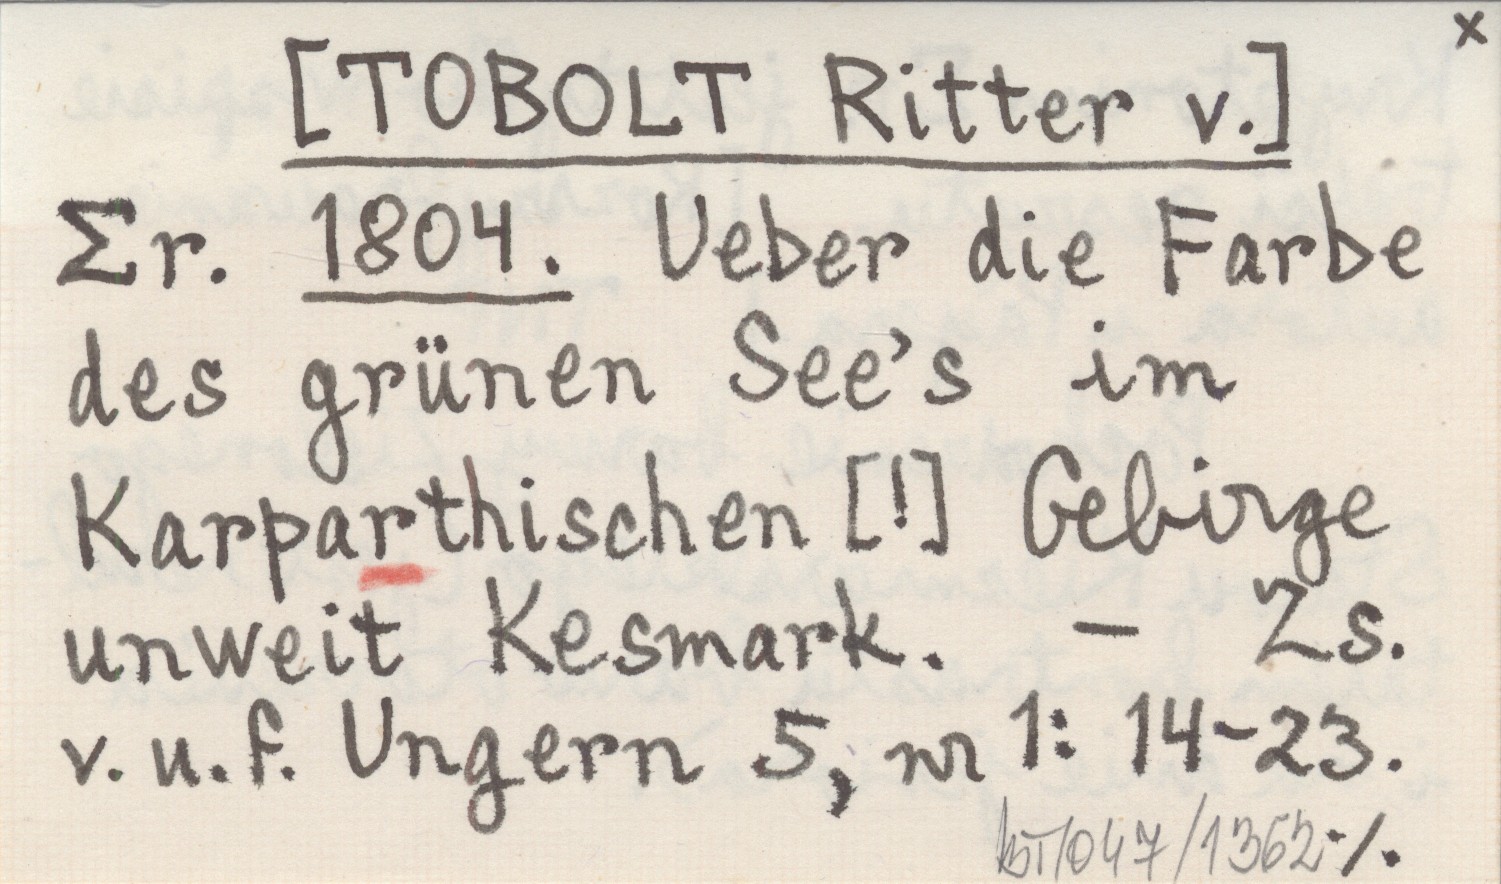 x
[TOBOLT Ritter v.]
Σr. 1804. Ueber die Farbe
des grünen See's im
Karparthischen [!] Gebirge
unweit Kesmark. – Zs.
v. u. f. Ungern 5, nr 1: 14-23.
/047/1362 ./.